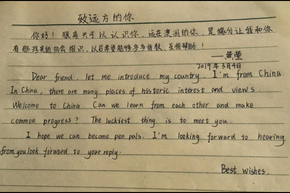 致远方的你
你好！很高兴可以认识你，远在澳国的你，是缘分让咱和你
以后希望能够多多
2019年3月4日
Dear friend, let me introduce my country. I'm from China
In China, there are many places of historic interest and views.
Welcome to China. Can we learn from each other and make
common progress? The luckiest thing is to meet you.
I hope we can become pen pals. I'm looking forward to hearing
from you look forward to your reply.
Best wishes.